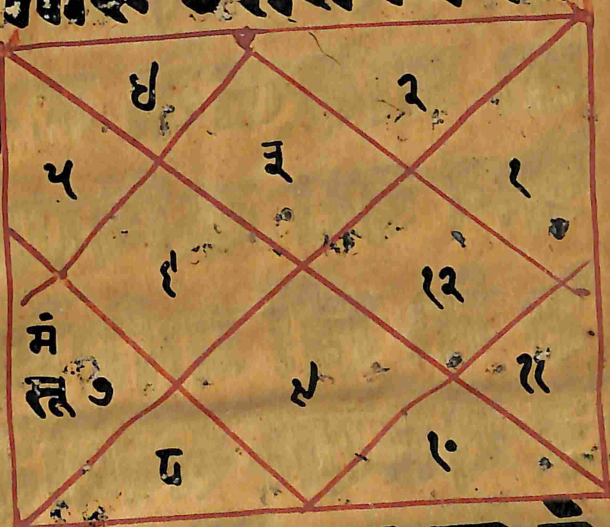 ४ २
३
५ १
६ १२
मं
सू ७ ९ ११
८ १०